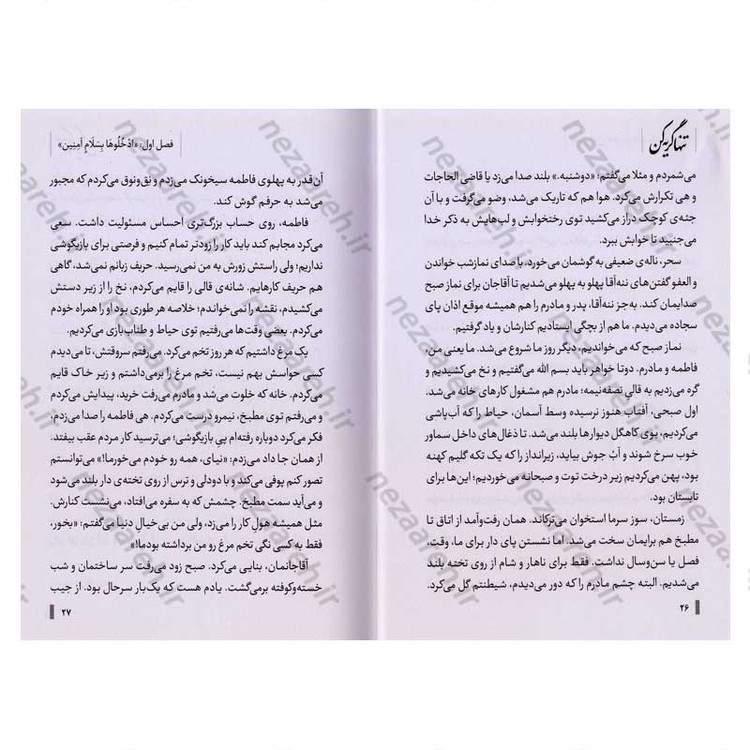 تنها گریه کن
می‌شمردم و مثلا می‌گفتم: «دوشنبه.» بلند صدا می‌زد یا قاضی الحاجات
و هی تکرارش می‌کرد. هوا هم که تاریک می‌شد، وضو می‌گرفت و با آن
جثه‌ی کوچک دراز می‌کشید توی رختخوابش و لب‌هایش به ذکر خدا
می‌جنبید تا خوابش ببرد.
سحر، ناله‌ی ضعیفی به گوشمان می‌خورد. با صدای نمازشب خواندن
و العفو گفتن‌های ننه‌آقا پهلو به پهلو می‌شدیم تا آقاجان برای نماز صبح
صدایمان کند. به‌جز ننه‌آقا، پدر و مادرم را هم همیشه موقع اذان پای
سجاده می‌دیدم. ما هم از بچگی ایستادیم کنارشان و یاد گرفتیم.
نماز صبح که می‌خواندیم، دیگر روز ما شروع می‌شد. ما یعنی من،
فاطمه و مادرم. دوتا خواهر باید بسم الله می‌گفتیم و نخ می‌کشیدیم و
گره می‌زدیم به قالی نصفه‌نیمه؛ مادرم هم مشغول کارهای خانه می‌شد.
اول صبحی، آفتاب هنوز نرسیده وسط آسمان، حیاط را که آب‌پاشی
می‌کردیم، بوی کاهگل دیوارها بلند می‌شد. تا ذغال‌های داخل سماور
خوب سرخ شوند و آبْ جوش بیاید، زیرانداز را که یک تکه گلیم کهنه
بود، پهن می‌کردیم زیر درخت توت و صبحانه می‌خوردیم؛ این‌ها برای
تابستان بود.
زمستان، سوز سرما استخوان می‌ترکاند. همان رفت‌وآمد از اتاق تا
مطبخ هم برایمان سخت می‌شد. اما نشستن پای دار برای ما، وقت،
فصل یا سن‌وسال نداشت. فقط برای ناهار و شام از روی تخته بلند
می‌شدیم. البته چشم مادرم را که دور می‌دیدم، شیطنتم گل می‌کرد.
۲۶
فصل اول: «ادْخُلُوها بِسَلامٍ آمِنِین»
آن‌قدر به پهلوی فاطمه سیخونک می‌زدم و نق‌ونوق می‌کردم که مجبور
می‌شد به حرفم گوش کند.
فاطمه، روی حساب بزرگ‌تری احساس مسئولیت داشت. سعی
می‌کرد مجابم کند باید کار را زودتر تمام کنیم و فرصتی برای بازیگوشی
نداریم؛ ولی راستش زورش به من نمی‌رسید. حریف زبانم نمی‌شد، گاهی
هم حریف کارهایم. شانه‌ی قالی را قایم می‌کردم، نخ را از زیر دستش
می‌کشیدم، نقشه را نمی‌خواندم؛ خلاصه هر طوری بود او را همراه خودم
می‌کردم. بعضی وقت‌ها می‌رفتیم توی حیاط و طناب‌بازی می‌کردیم.
یک مرغ داشتیم که هر روز تخم می‌کرد. می‌رفتم سروقتش، تا می‌دیدم
کسی حواسش بهم نیست، تخم مرغ را برمی‌داشتم و زیر خاک قایم
می‌کردم. خانه که خلوت می‌شد و مادرم می‌رفت خرید، پیدایش می‌کردم
و می‌رفتم توی مطبخ، نیمرو درست می‌کردم. هی فاطمه را صدا می‌زدم،
فکر می‌کرد دوباره رفته‌ام پیِ بازیگوشی؛ می‌ترسید کار مردم عقب بیفتد.
از همان جا داد می‌زدم: «نیای، همه رو خودم می‌خورما!» می‌توانستم
تصور کنم پوفی می‌کند و با دودلی و ترس از روی تخته‌ی دار بلند می‌شود
و می‌آید سمت مطبخ. چشمش که به سفره می‌افتاد، می‌نشست کنارش.
مثل همیشه هولِ کار را می‌زد، ولی من بی‌خیال دنیا می‌گفتم: «بخور،
فقط به کسی نگی تخم مرغ رو من برداشته بودما!»
آقاجانمان، بنایی می‌کرد. صبح زود می‌رفت سر ساختمان و شب
خسته‌وکوفته برمی‌گشت. یادم هست که یک‌بار سرحال بود. از جیب
۲۷
nezaareh.ir